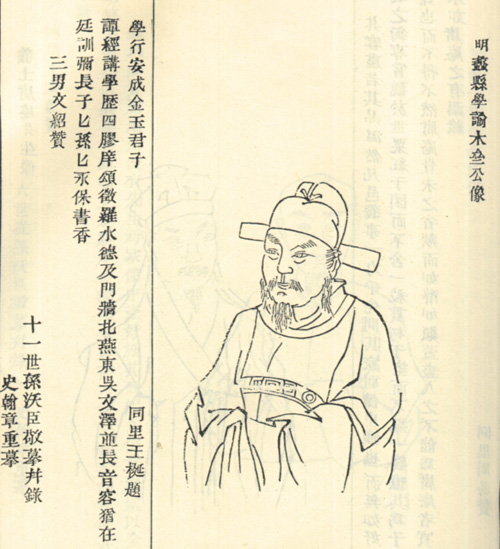 明蠡縣學諭木公像
學行安成金玉君子 同里王題
譚經講學歷四膠庠頌徵羅水德及門牆北燕東吳文澤並長音容猶在
廷訓彌長子匕孫匕永保書香
三男文紹贊
十一世孫沃臣敬摹幷錄
史翰章重摹